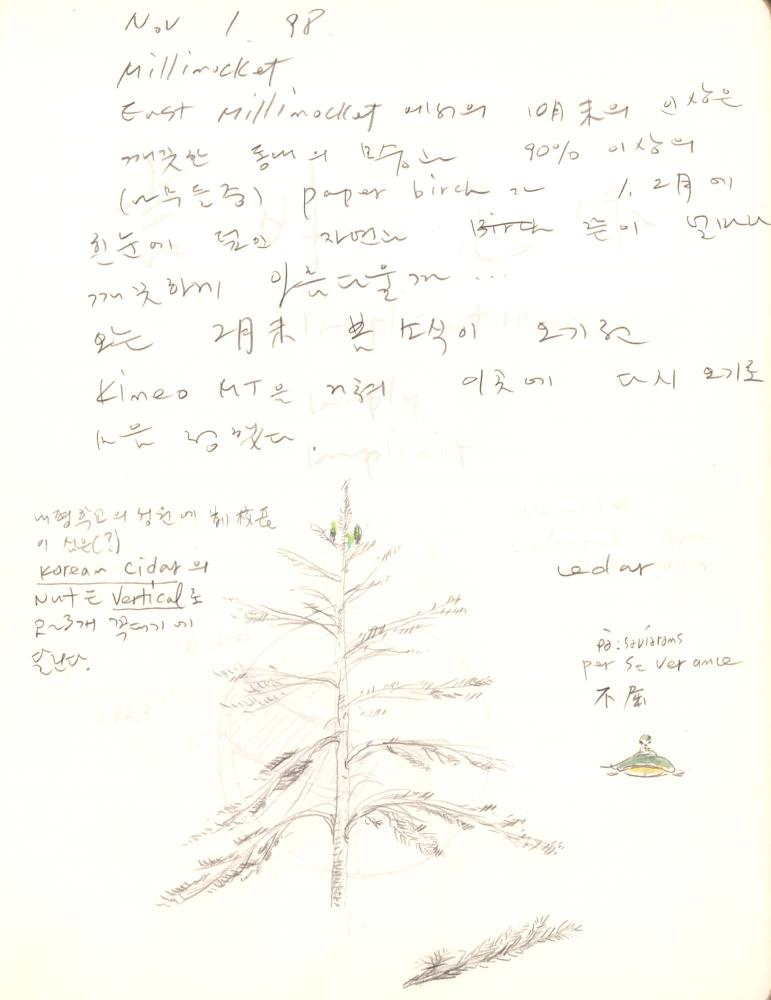 Nov 1 98
Millinocket
East Millinocket 에서의 10月末의 인상은
깨끗한 동내의 모습과 90% 이상의
(나무들중) paper birch 가 1, 2月에
흰눈에 덮인 자연과 Birch 들이 얼마나
깨끗하게 아름다울까 ...
오는 2月末 봄 소식이 오기전
Kineo MT을 거쳐 이곳에 다시 오기로
마음 정했다.
학교의 정원에 校長
이 심은(?)
Korean Cidar의
Nut도 Vertical로
2~3개 꼭대기에
달린다.
cedar
pə:səviərəns
perseverance
不屈